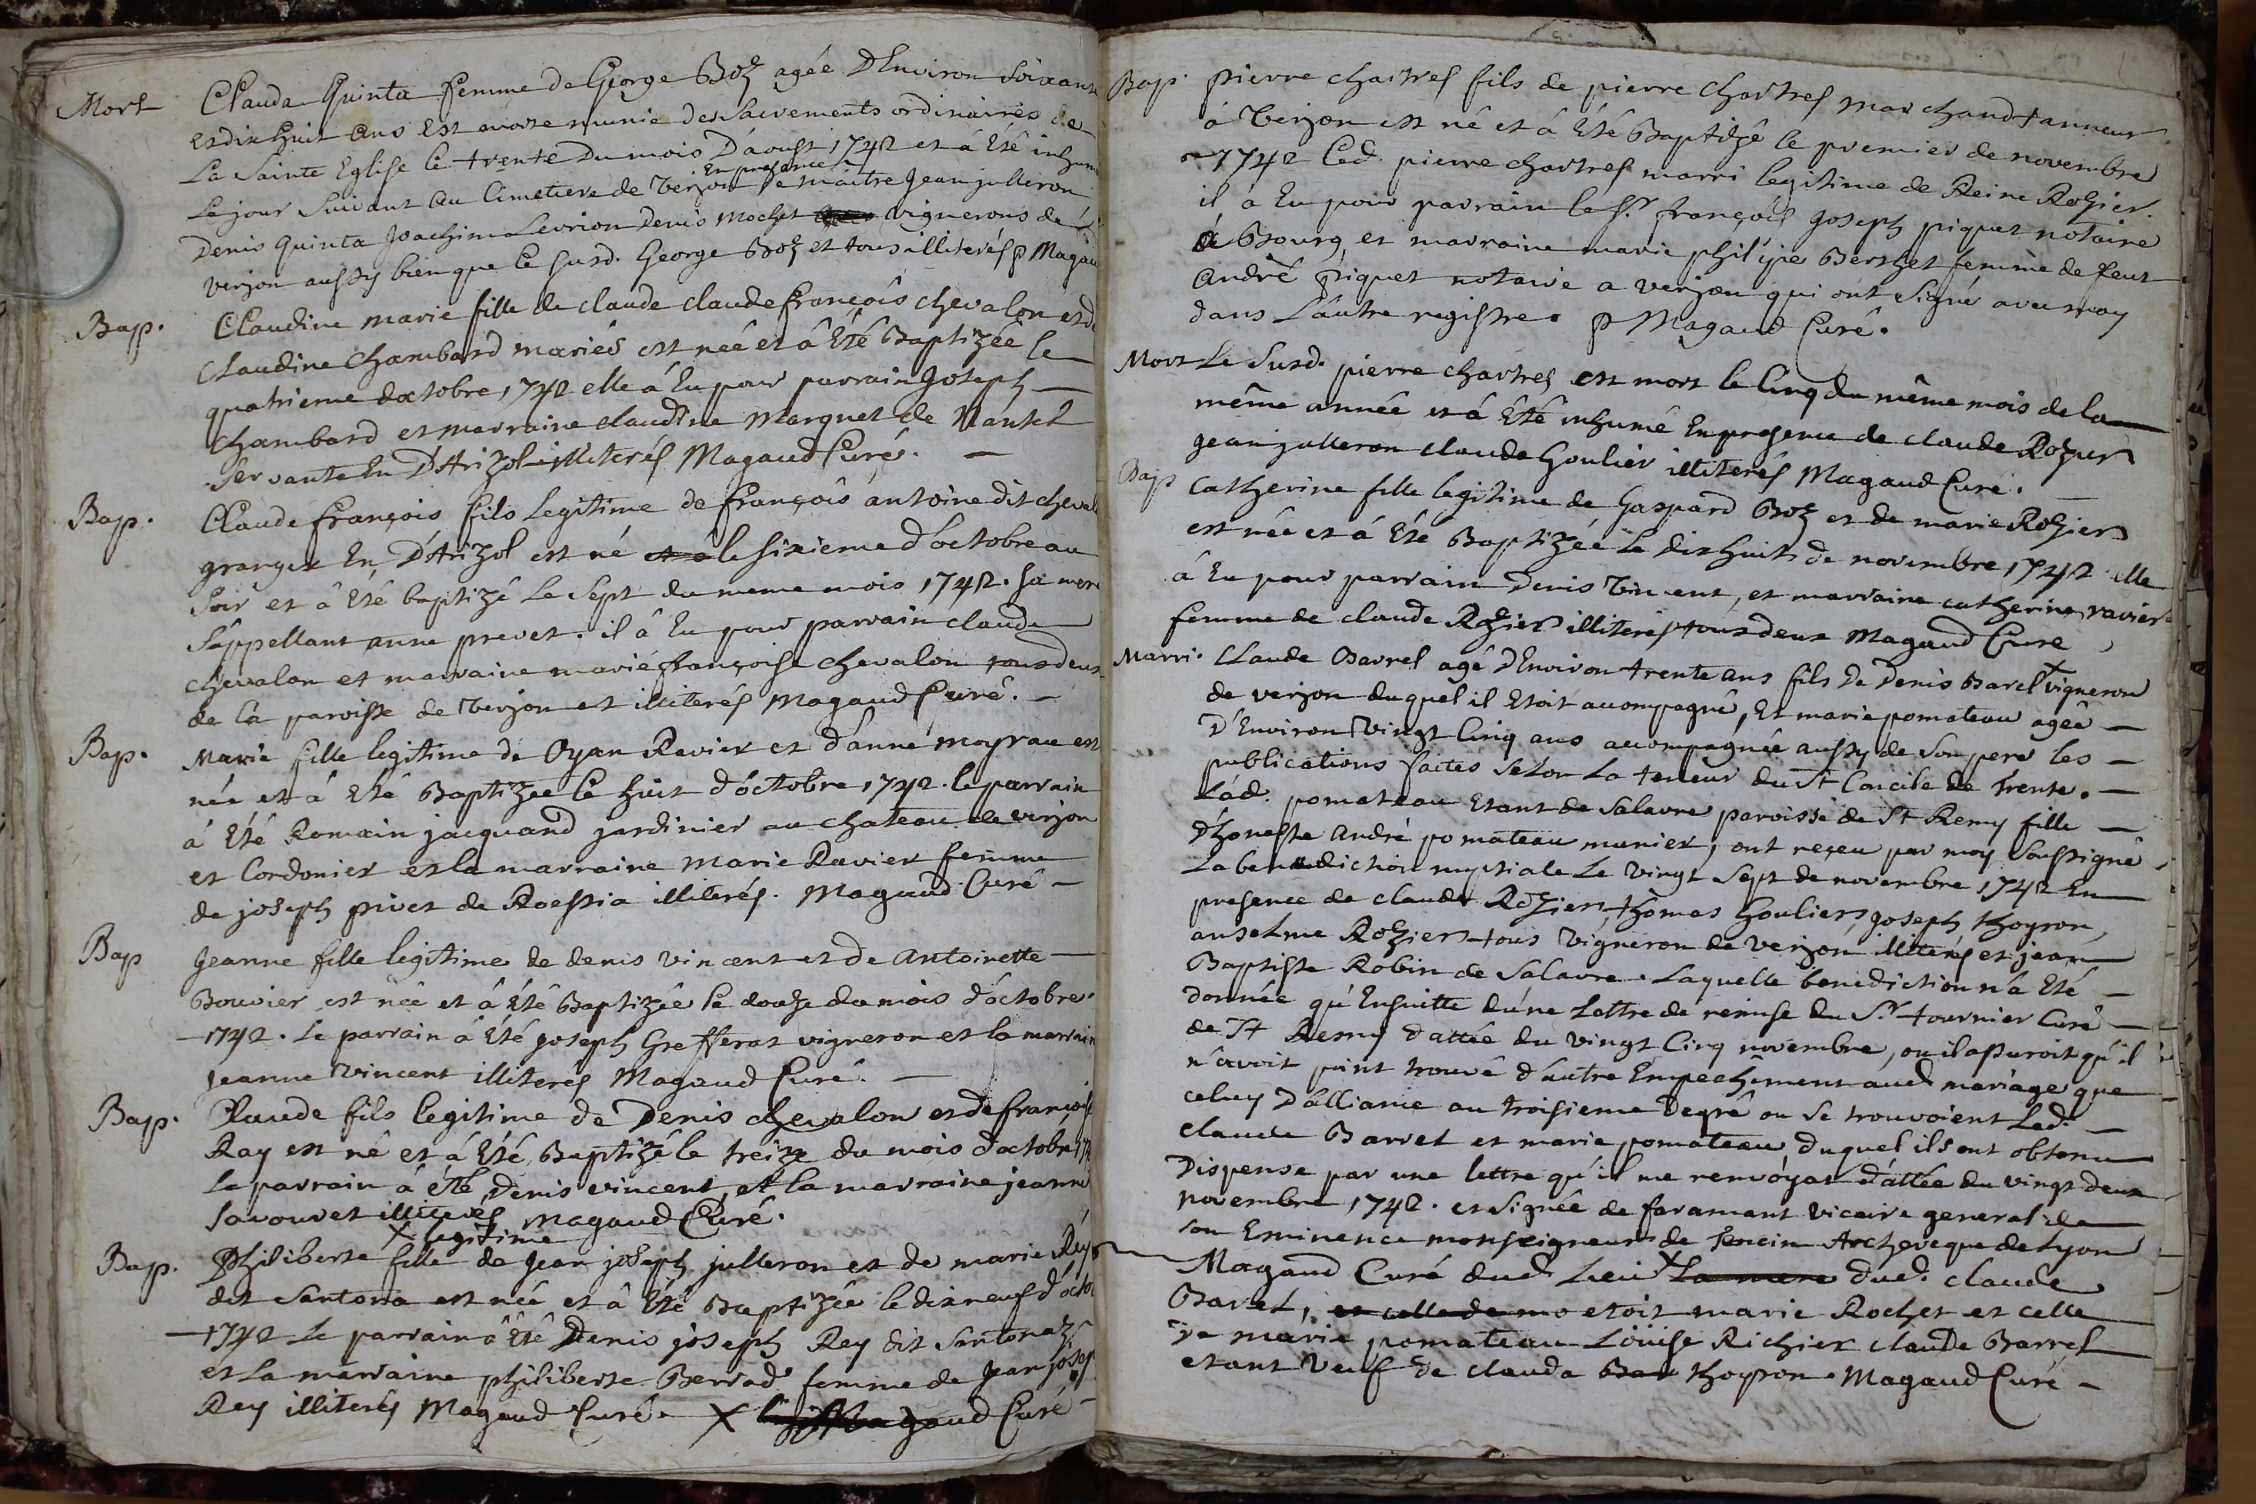 Mort Clauda Quinta femme de George Boz agée D'Environ soixante
et dix huit ans Est morte munie des Sacrements ordinaires de
La Sainte Eglise le trente Du mois D'aoust 1742 et â Eté inhumé
Le jour Suivant Au Cimetiere de Verjon En presence de maitre Jean julleron
Denis Quinta Joachim Levrion Denis Mochet vignerons de
verjon aussy bien que le susd. George Boz et tous illiterés p Magaud
Bap. Claudine marie fille de claude claude françois chevalon et de
Claudine Chambard mariés est née et â Eté Baptizée le
quatrieme doctobre 1742 elle â Eu pour parrain Joseph
Chambard et marraine claudine Marquet de Nantel
servante En D'Arizol illiterés Magaud Curé.
Bap. Claude françois fils Legitime de françois antoine dit cheval
granger En D'Arizol est né et â le sixieme d'octobre au
soir et â Eté baptizé Le Sept du meme mois 1742. sa mere
s'appellant anne prevet. il â Eu pour parrain claude
chevalon et marraine marie françoise chevalon tous deux
de la paroisse de Verjon et illiterés Magaud Curé.
Bap. Marie fille legitime de Oyan Ravier et d'anne moyrau est
née et â Eté Baptizée le huit d'octobre 1742. le parrain
â Eté Romain jacquand jardinier au chateau de verjon
et Cordonier et la marraine Marie Ravier femme
de joseph pivet de Roessia illiterés. Magaud Curé
Bap Jeanne fille legitime de denis vincent et de Antoinette
Bouvier est née et â Eté Baptizée le douze du mois d'octobre
1742. Le parrain â Eté joseph Grefferat vigneron et la marrain
Jeanne Vincent illiterés Magaud Curé.
Bap. Claude fils legitime de Denis chevalon et de françoise
Ray est né et â Eté Baptizé le treize du mois d'octobre 174
Le parrain â été Denis vincent et la marraine jeanne
Savouret illiterés Magaud Curé.
X legitime
Bap. Philiberte fille de Jean joseph julleron et de marie Rey
dit Santona est née et â Eté Baptizée le dix neuf d'octo
1742 Le parrain â Eté Denis joseph Rey dit Santonaz
et La marraine philiberte Berrad femme de Jean josep
Rey illiterés Magaud Curé. X Magaud Curé
Bap. pierre chartres fils de pierre Chartres marchand tanneur
â Verjon est né et â Eté Baptizé le premier de novembre
1742 led. pierre chartres marri legitime de Reine Rozier.
il a Eu pour parrain le Sr. françois joseph piquet notaire
â Bourg et marraine marie philipe Berthet femme de feut
André piquet notaire a verjon qui ont signé avec moy
dans L'autre registre. p Magaud Curé.
Mort Le Susd. pierre chartres est mort le Cinq du même mois de la
même année et â Eté inhumé En presence de claude Rozier
jean julleron claude Goulier illiterés Magaud Curé.
Bap Catherine fille legitime de Gaspard Boz et de marie Rozier
est née et â Eté Baptizée le dix huit de novembre 1742 elle
â Eu pour parrain Denis Vincent, et marraine catherine ravier
femme de claude Rozier illiterés tous deux Magaud Cure
Marri. Claude Barrel agé D'Environ trente ans fils de Denis Barel X vigneron
de verjon duquel il Etoit accompagné, Et marie pomateau agée
D'Environ Vingt Cinq ans accompagnée aussy de son pere les
publications faites selon La teneur du St Concile de Trente.
Lad. pomateau Etant de Salavre paroisse de St Remy fille
D'honeste André pomateau munier, ont reçeu par moy soussigné
La benediction nuptiale Le Vingt Sept de novembre 1742 En
presence de claude Rozier, thomas Goulier, joseph thoyron,
anselme Rozier tous Vigneron de verjon illiterés et jean
Baptiste Robin de Salavre. Laquelle benediction n'a Eté
donnée qu'Ensuitte d'une Lettre de remise du Sr. tournier Curé
de St Remy dattée du vingt Cinq novembre, ou il assuroit qu'il
n'avoit point trouvé d'autre Empechement aud. mariage que
celuy D'alliance au troisieme Degré ou se trouvoient Led.
claude Barrel et marie pomateau, duquel ils ont obtenu
Dispense par une lettre qu'il me renvoyat dattée du vingt deux
novembre 1742. et signée de faramant vicaire general de
son Eminence monseigneur de Tencin Archeveque de Lyon
Magaud Curé dud. Lieu X La mere dud. claude
Barel, et celle de mo etoit marie Rochet et celle
De marie pomateau Louise Richier claude Barrel
etant Veuf de clauda Bar thoyron. Magaud Curé